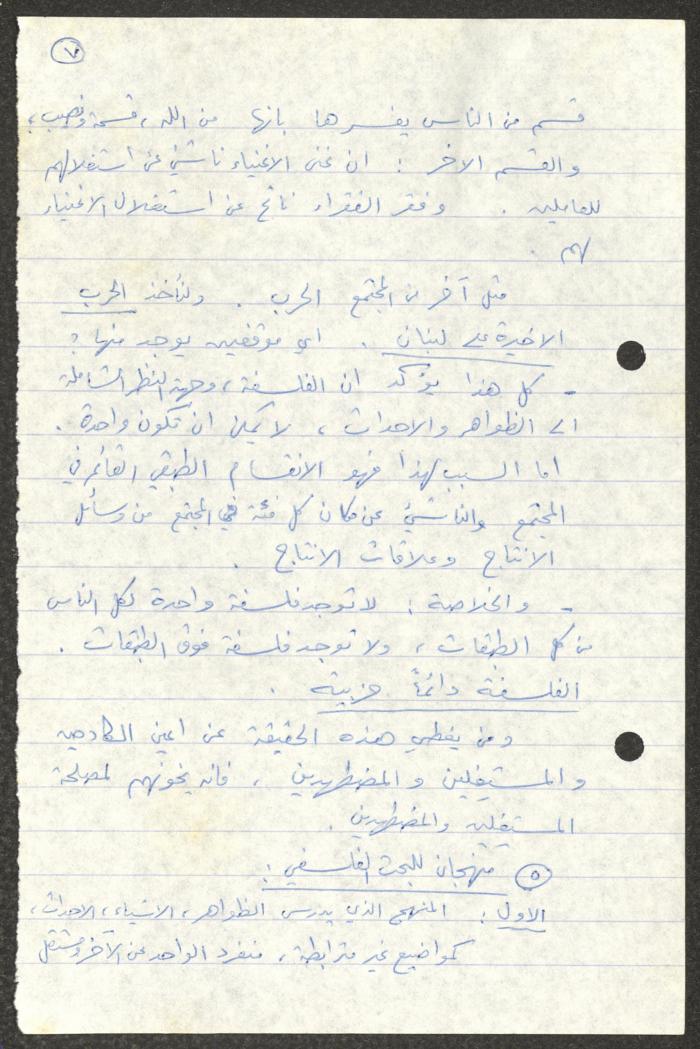 ٧
قسم من الناس يفسرها بانها من الله، قسمة ونصيب،
والقسم الاخر : ان غنى الاغنياء ناشئ عن استغلالهم
للعاملين . وفقر الفقراء ناتج عن استغلال الاغنياء
لهم .
مثل آخر من المجتمع الحرب . ولنأخذ الحرب
الاخيرة على لبنان . اي موقفين يوجد منها ؟
- كل هذا يؤكد ان الفلسفة، وجهة النظر الشاملة
الى الظواهر والاحداث ، لا يمكن ان تكون واحدة .
اما السبب لهذا فهو الانقسام الطبقي القائم في
المجتمع والناشئ عن مكان كل فئة في المجتمع من وسائل
الانتاج وعلاقات الانتاج .
- والخلاصة : لا توجد فلسفة واحدة لكل الناس
من كل الطبقات ، ولا توجد فلسفة فوق الطبقات .
الفلسفة دائماً حزبية .
ومن يغطي هذه الحقيقة عن اعين الكادحين
والمستغلين والمضطهدين ، فانه يخونهم لمصلحة
المستغلين والمضطهدين .
٥ منهجان للبحث الفلسفي :
الاول : المنهج الذي يدرس الظواهر ، الاشياء ، الاحداث ،
كمواضيع غير مترابطة ، منفرد الواحد عن الآخر ومستقل